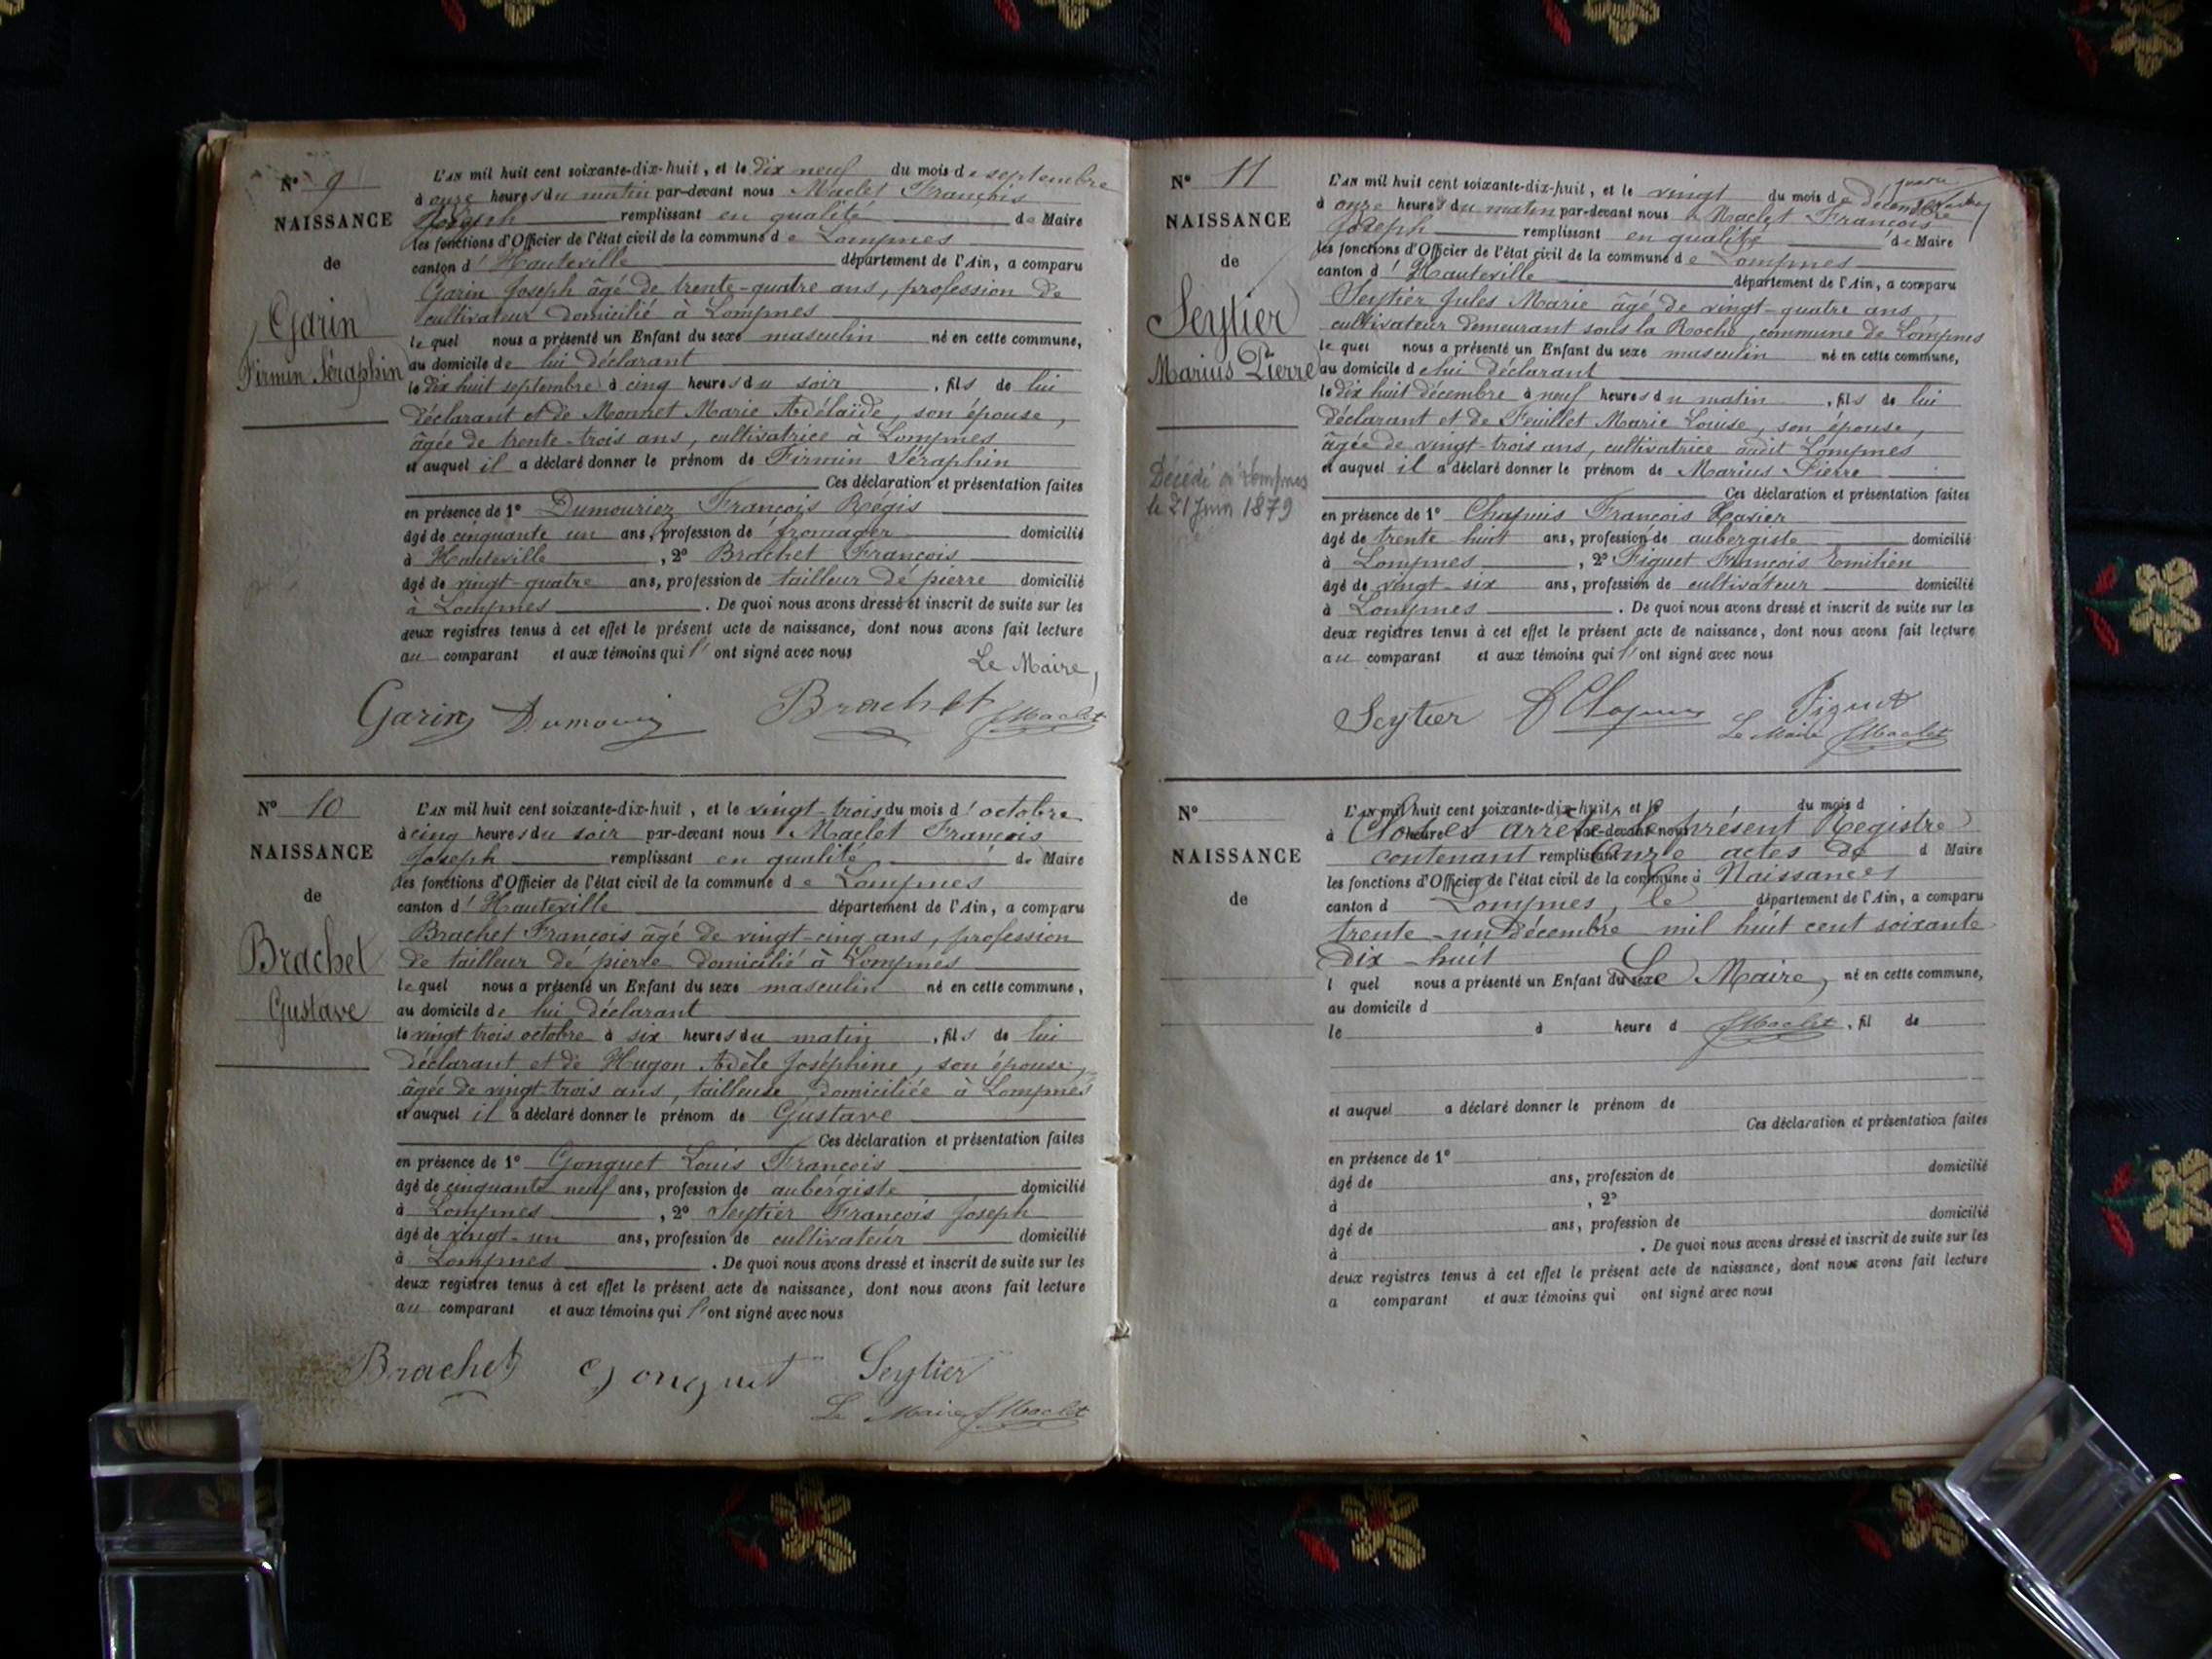 N° 9
NAISSANCE
de
Garin
Firmin Séraphin
L'AN mil huit cent soixante-dix-huit, et le dix neuf du mois de septembre
à onze heures du matin par-devant nous Maclet François
Joseph remplissant en qualité de Maire
les fonctions d'Officier de l'état civil de la commune de Lompnes
canton d'Hauteville département de l'Ain, a comparu
Garin Joseph âgé de trente-quatre ans, profession de
cultivateur domicilié à Lompnes
lequel nous a présenté un Enfant du sexe masculin né en cette commune,
au domicile de lui déclarant
le dix huit septembre à cinq heures du soir, fils de lui
déclarant et de Monnet Marie Adélaïde, son épouse,
âgée de trente-trois ans, cultivatrice à Lompnes
et auquel il a déclaré donner le prénom de Firmin Séraphin
Ces déclaration et présentation faites
en présence de 1° Dumouriez François Régis
âgé de cinquante un ans, profession de fromager domicilié
à Hauteville, 2° Brachet François
âgé de vingt-quatre ans, profession de tailleur de pierre domicilié
à Lompnes. De quoi nous avons dressé et inscrit de suite sur les
deux registres tenus à cet effet le présent acte de naissance, dont nous avons fait lecture
au comparant et aux témoins qui l'ont signé avec nous
Le Maire,
Garin Brachet JMaclet
N° 10
NAISSANCE
de
Brachet
Gustave
L'AN mil huit cent soixante-dix-huit, et le vingt-trois du mois d'octobre
à cinq heures du soir par-devant nous Maclet François
Joseph remplissant en qualité de Maire
les fonctions d'Officier de l'état civil de la commune de Lompnes
canton d'Hauteville département de l'Ain, a comparu
Brachet François âgé de vingt-cinq ans, profession
de tailleur de pierre domicilié à Lompnes
lequel nous a présenté un Enfant du sexe masculin né en cette commune,
au domicile de lui déclarant
le vingt trois octobre à six heures du matin, fils de lui
déclarant et de Hugon Adèle Joséphine, son épouse,
âgée de vingt-trois ans, tailleuse domiciliée à Lompnes
et auquel il a déclaré donner le prénom de Gustave
Ces déclaration et présentation faites
en présence de 1° Gonguet Louis François
âgé de cinquante neuf ans, profession de aubergiste domicilié
à Lompnes, 2° Seytier François Joseph
âgé de vingt-un ans, profession de cultivateur domicilié
à Lompnes. De quoi nous avons dressé et inscrit de suite sur les
deux registres tenus à cet effet le présent acte de naissance, dont nous avons fait lecture
au comparant et aux témoins qui l'ont signé avec nous
Brachet Gonguet Seytier
Le Maire JMaclet
N° 11
NAISSANCE
de
Seytier
Marius Pierre
Décédé à Lompnes
le 21 Juin 1879
L'AN mil huit cent soixante-dix-huit, et le vingt du mois de décembre
à onze heures du matin par-devant nous Maclet François
Joseph remplissant en qualité de Maire
les fonctions d'Officier de l'état civil de la commune de Lompnes
canton d'Hauteville département de l'Ain, a comparu
Seytier Jules Marie âgé de vingt-quatre ans
cultivateur demeurant sous la Roche commune de Lompnes
lequel nous a présenté un Enfant du sexe masculin né en cette commune,
au domicile de lui déclarant
le dix huit décembre à neuf heures du matin, fils de lui
déclarant et de Feuillet Marie Louise, son épouse,
âgée de vingt-trois ans, cultivatrice audit Lompnes
et auquel il a déclaré donner le prénom de Marius Pierre
Ces déclaration et présentation faites
en présence de 1° Chapuis François Xavier
âgé de trente huit ans, profession de aubergiste domicilié
à Lompnes, 2° Figuet François Emilien
âgé de vingt-six ans, profession de cultivateur domicilié
à Lompnes. De quoi nous avons dressé et inscrit de suite sur les
deux registres tenus à cet effet le présent acte de naissance, dont nous avons fait lecture
au comparant et aux témoins qui l'ont signé avec nous
Seytier Figuet
Le Maire JMaclet
N°
NAISSANCE
de
L'AN mil huit cent soixante-dix-huit, et le du mois d
à heure d par-devant nous
Clos et arrêté le présent Registre
remplissant d Maire
contenant onze actes de
les fonctions d'Officier de l'état civil de la commune d
Naissances
canton d département de l'Ain, a comparu
à Lompnes, le
trente-un décembre mil huit cent soixante
dix-huit
l quel nous a présenté un Enfant du sexe né en cette commune,
Le Maire,
au domicile d
le à heure d, fil de
JMaclet
et auquel a déclaré donner le prénom de
Ces déclaration et présentation faites
en présence de 1°
âgé de ans, profession de domicilié
à, 2°
âgé de ans, profession de domicilié
à. De quoi nous avons dressé et inscrit de suite sur les
deux registres tenus à cet effet le présent acte de naissance, dont nous avons fait lecture
a comparant et aux témoins qui ont signé avec nous